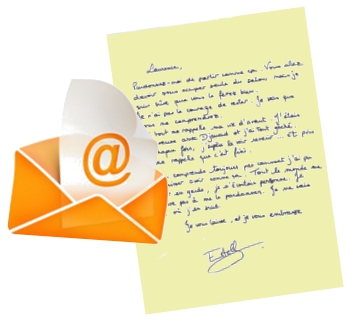 @
Laurence,
Pardonnez-moi de partir comme ça. Vous allez
devoir vous occuper seule du salon mais je
suis sûre que vous le ferez bien.
Je n'ai pas le courage de rester. Je sais que
vous me comprendrez.
tout me rappelle ma vie d'avant. J'étais
heureuse avec Djawad et j'ai tout gâché.
chaque fois, j'espère le voir revenir. Et puis
me rappelle que c'est fini.
comprends toujours pas comment j'ai pu
arriver là. Tout le monde me
gueule, je n'écoutais personne. Je
pas à me le pardonner. Je ne sais
où j'en suis.
Je vous laisse, et je vous embrasse
Estelle